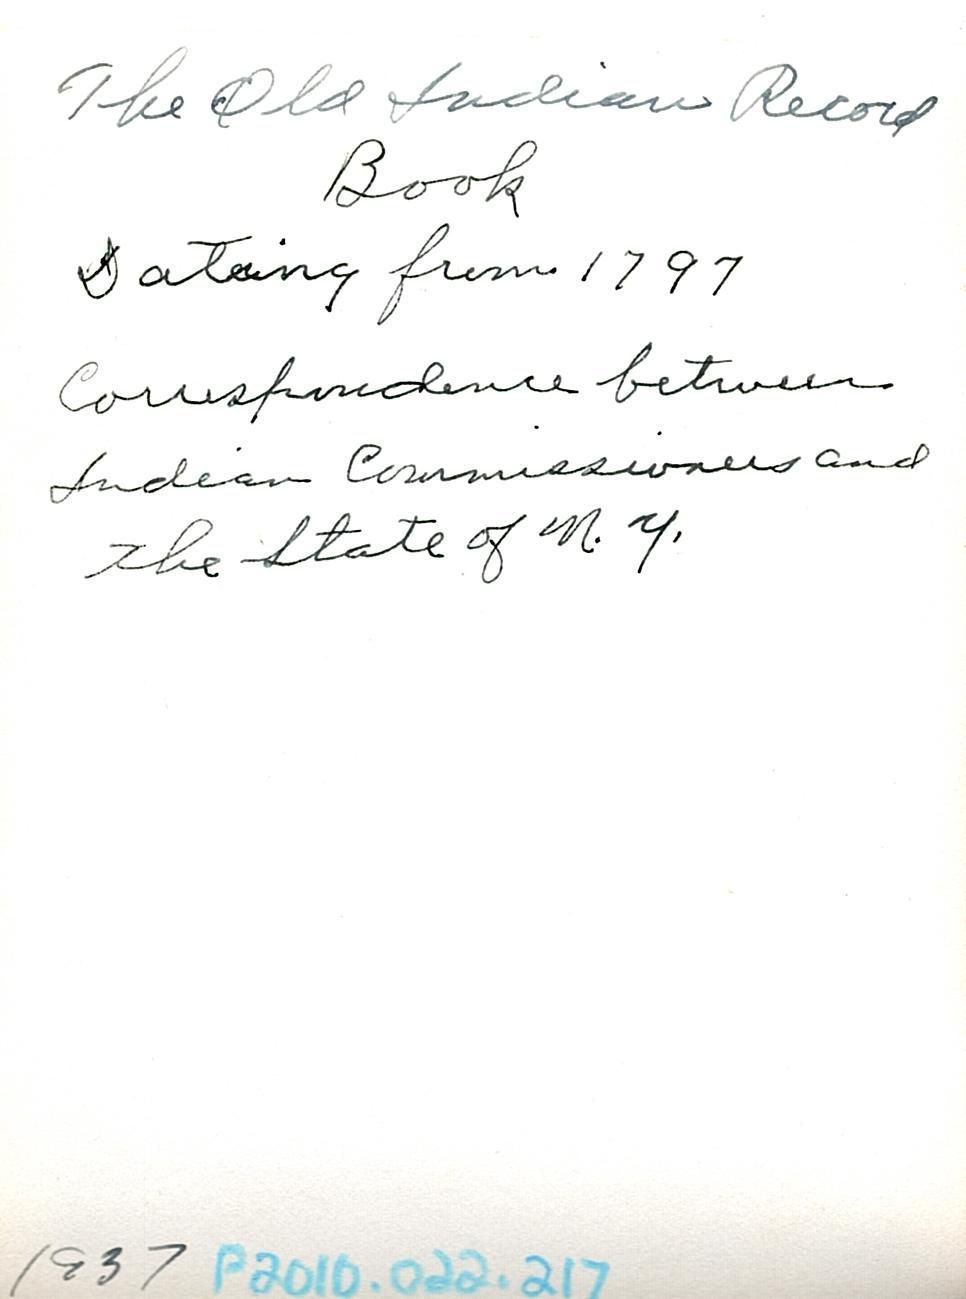 The Old Indian Record
Book
Dateing from 1797
Correspondence between
Indian Commissioners and
the State of N.Y.
1937 P2010.022.217